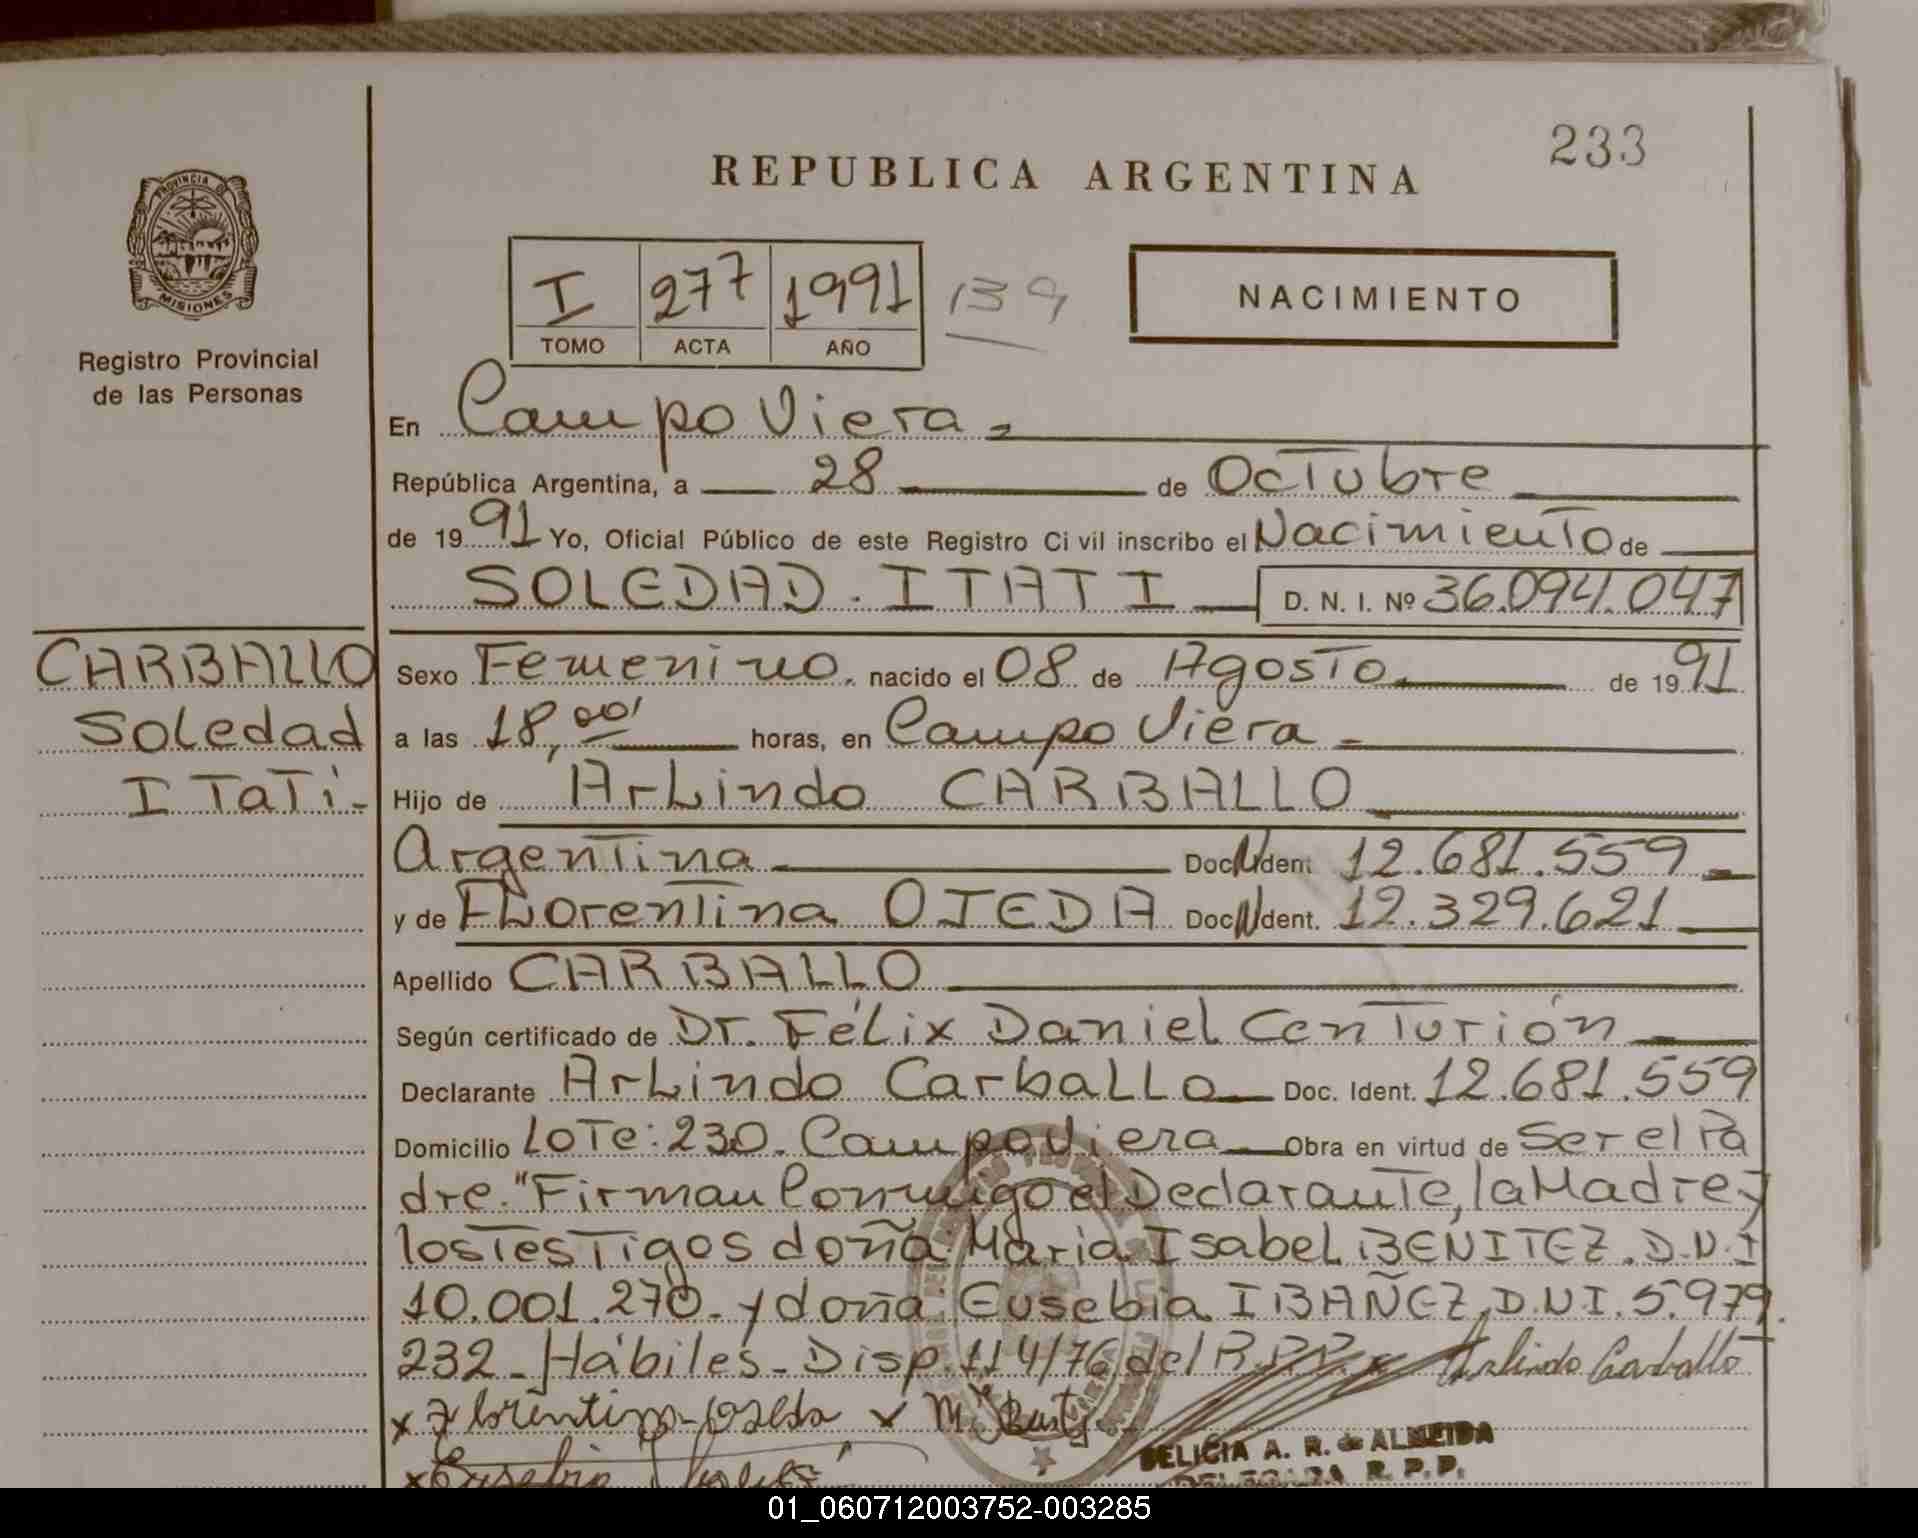 233
REPUBLICA ARGENTINA
PROVINCIA DE
MISIONES
Registro Provincial
de las Personas
I 277 1991 139
TOMO ACTA AÑO
NACIMIENTO
En Campo Viera
República Argentina, a 28 de Octubre
de 1991 Yo, Oficial Público de este Registro Ci vil inscribo el Nacimiento de
SOLEDAD. ITATI D. N. I. Nº 36.094.047
CARBALLO
Soledad
ITaTi-
Sexo Femenino. nacido el 08 de Agosto de 1991
a las 18,00' horas, en Campo Viera
Hijo de Arlindo CARBALLO
Argentina Doc Ident 12.681.559
y de Florentina OJEDA Doc Ident. 12.329.621
Apellido CARBALLO
Según certificado de Dr. Félix Daniel Centurión
Declarante Arlindo Carballo Doc. Ident. 12.681.559
Domicilio Lote: 230. Campo Viera Obra en virtud de Ser el Pa
dre."Firman Conmigo el Declarante, la Madre y
los Testigos doña María Isabel BENITEZ. D.N.I
10.001.270. y doña Eusebia IBAÑEZ, D.N.I. 5.979.
232_Hábiles_Disp. 114/76 del R.P.P. x Arlindo Carballo
x Florentina Ojeda x M.
x Eusebia
DELICIA A. R. de ALMEIDA
DELEGADA R. P. P.
01_060712003752-003285